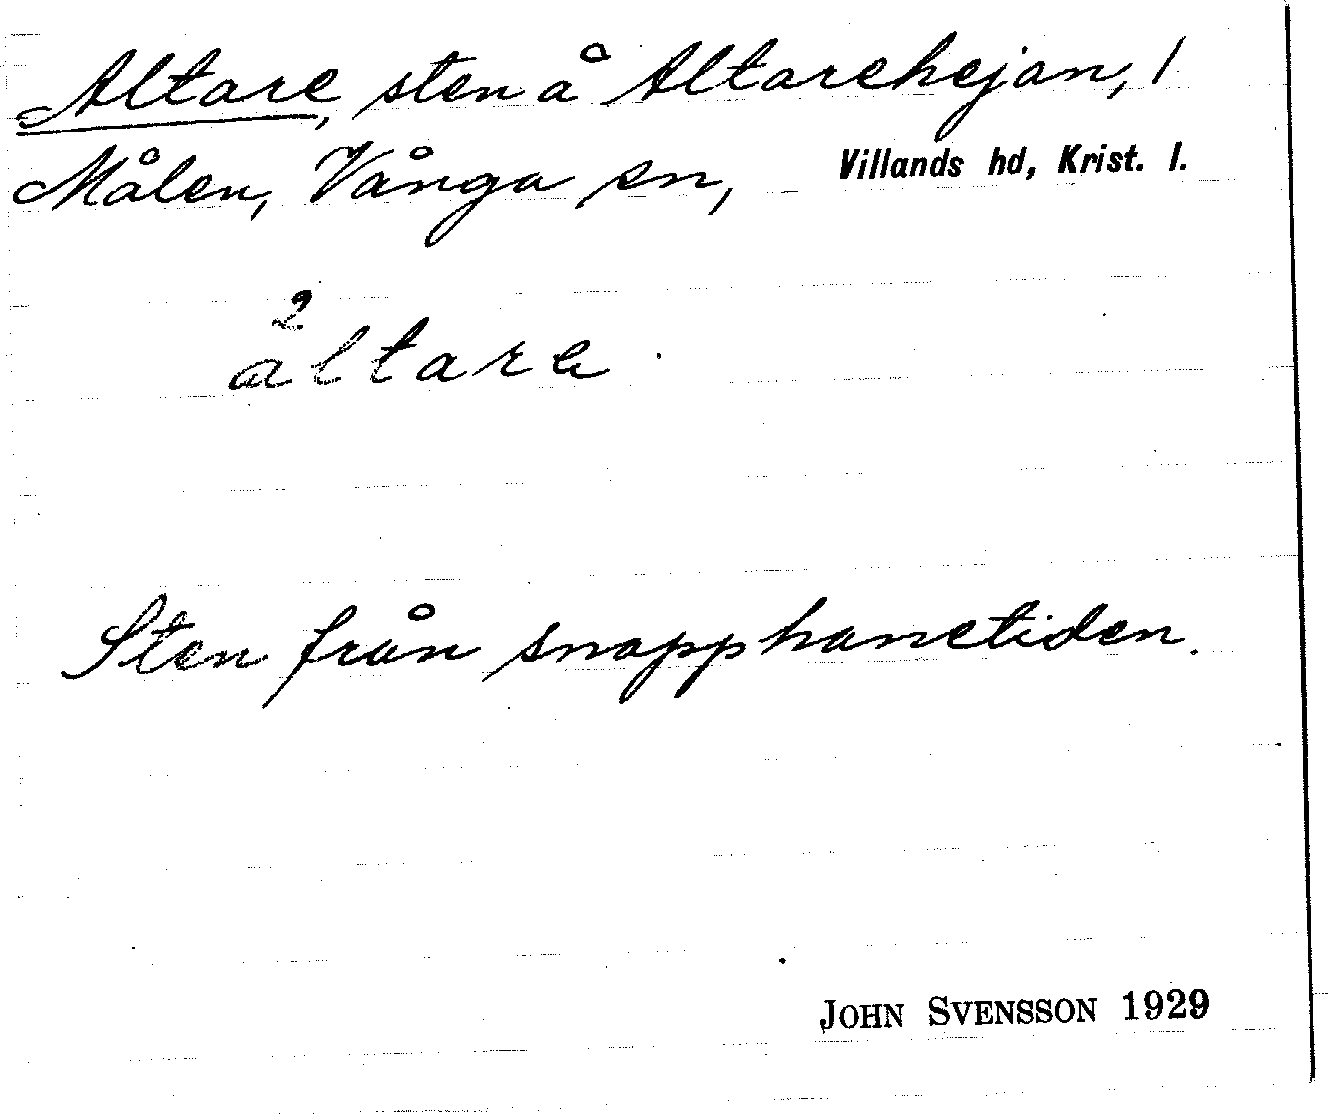 Altare, sten å Altarehejan, 1
Målen, Vånga sn, Villands hd, Krist. l.
2
altare
Sten från snapphanetiden.
JOHN SVENSSON 1929